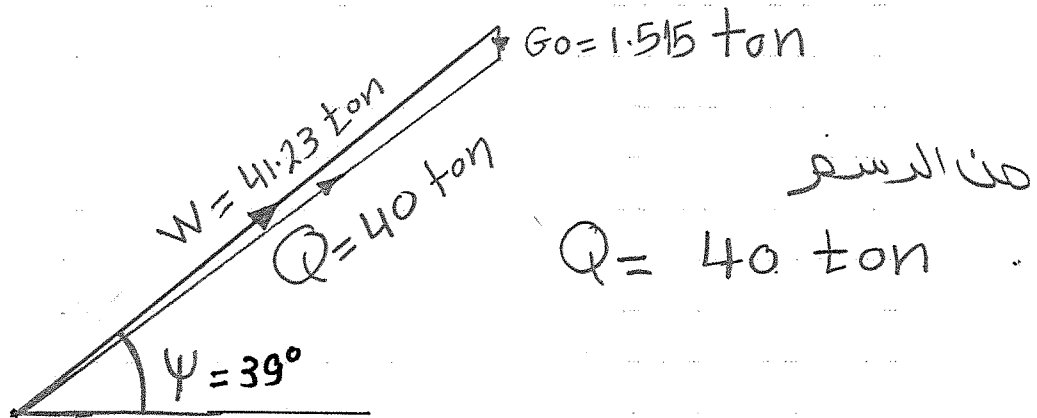 Go = 1.515 ton
W = 41.23 ton
Q = 40 ton
من الرسم
Q = 40 ton .
Ψ = 39°